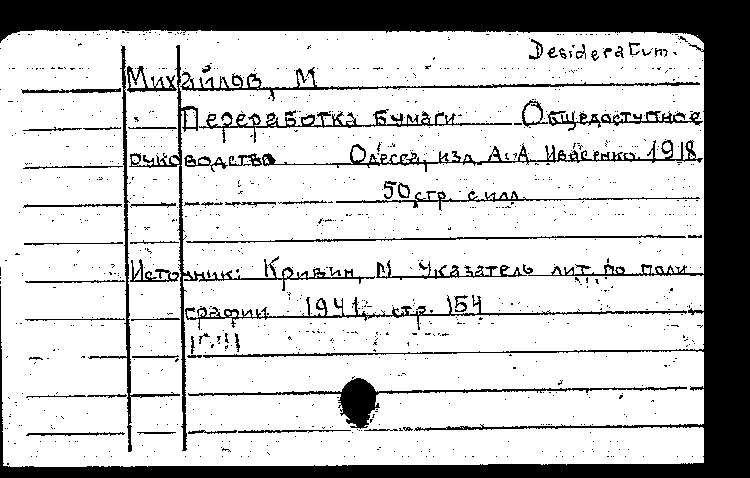 Desideratum.
Михайлов, М
Переработка бумаги. Общедоступное
руководство. Одесса, изд. А.А. Ивасенко. 1918.
50 стр. с илл.
Источник: Кривин, М. Указатель лит. по поли
графии 1941, стр. 154